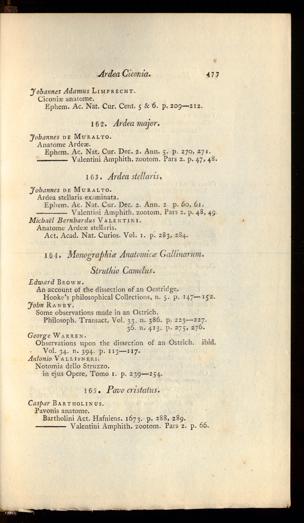 Ardea Ciconia. 477
Johannes Adamus LIMPRECHT.
Ciconiæ anatome.
Ephem. Ac. Nat. Cur. Cent. 5 & 6. p. 209—212.
162. Ardea major.
Johannes DE MURALTO.
Anatome Ardeæ.
Ephem. Ac. Nat. Cur. Dec. 2. Ann. 5. p. 270, 271.
——— Valentini Amphith. zootom. Pars 2. p. 47, 48.
163. Ardea stellaris.
Johannes DE MURALTO.
Ardea stellaris examinata.
Ephem. Ac. Nat. Cur. Dec. 2. Ann. 2. p. 60, 61.
——— Valentini Amphith. zootom. Pars 2. p. 48, 49.
Michaël Bernhardus VALENTINI.
Anatome Ardeæ stellaris.
Act. Acad. Nat. Curios. Vol. 1. p. 283, 284.
164. Monographiæ Anatomicæ Gallinarum.
Struthio Camelus.
Edward BROWN.
An account of the dissection of an Oestridge.
Hooke's philosophical Collections, n. 5. p. 147—152.
John RANBY.
Some observations made in an Ostrich.
Philosoph. Transact. Vol. 33. n. 386. p. 223—227.
36. n. 413. p. 275, 276.
George WARREN.
Observations upon the dissection of an Ostrich. ibid.
Vol. 34. n. 394. p. 113—117.
Antonio VALLISNERI.
Notomia dello Struzzo.
in ejus Opere, Tomo 1. p. 239—254.
165. Pavo cristatus.
Caspar BARTHOLINUS.
Pavonis anatome.
Bartholini Act. Hafniens. 1673. p. 288, 289.
——— Valentini Amphith. zootom. Pars 2. p. 66.